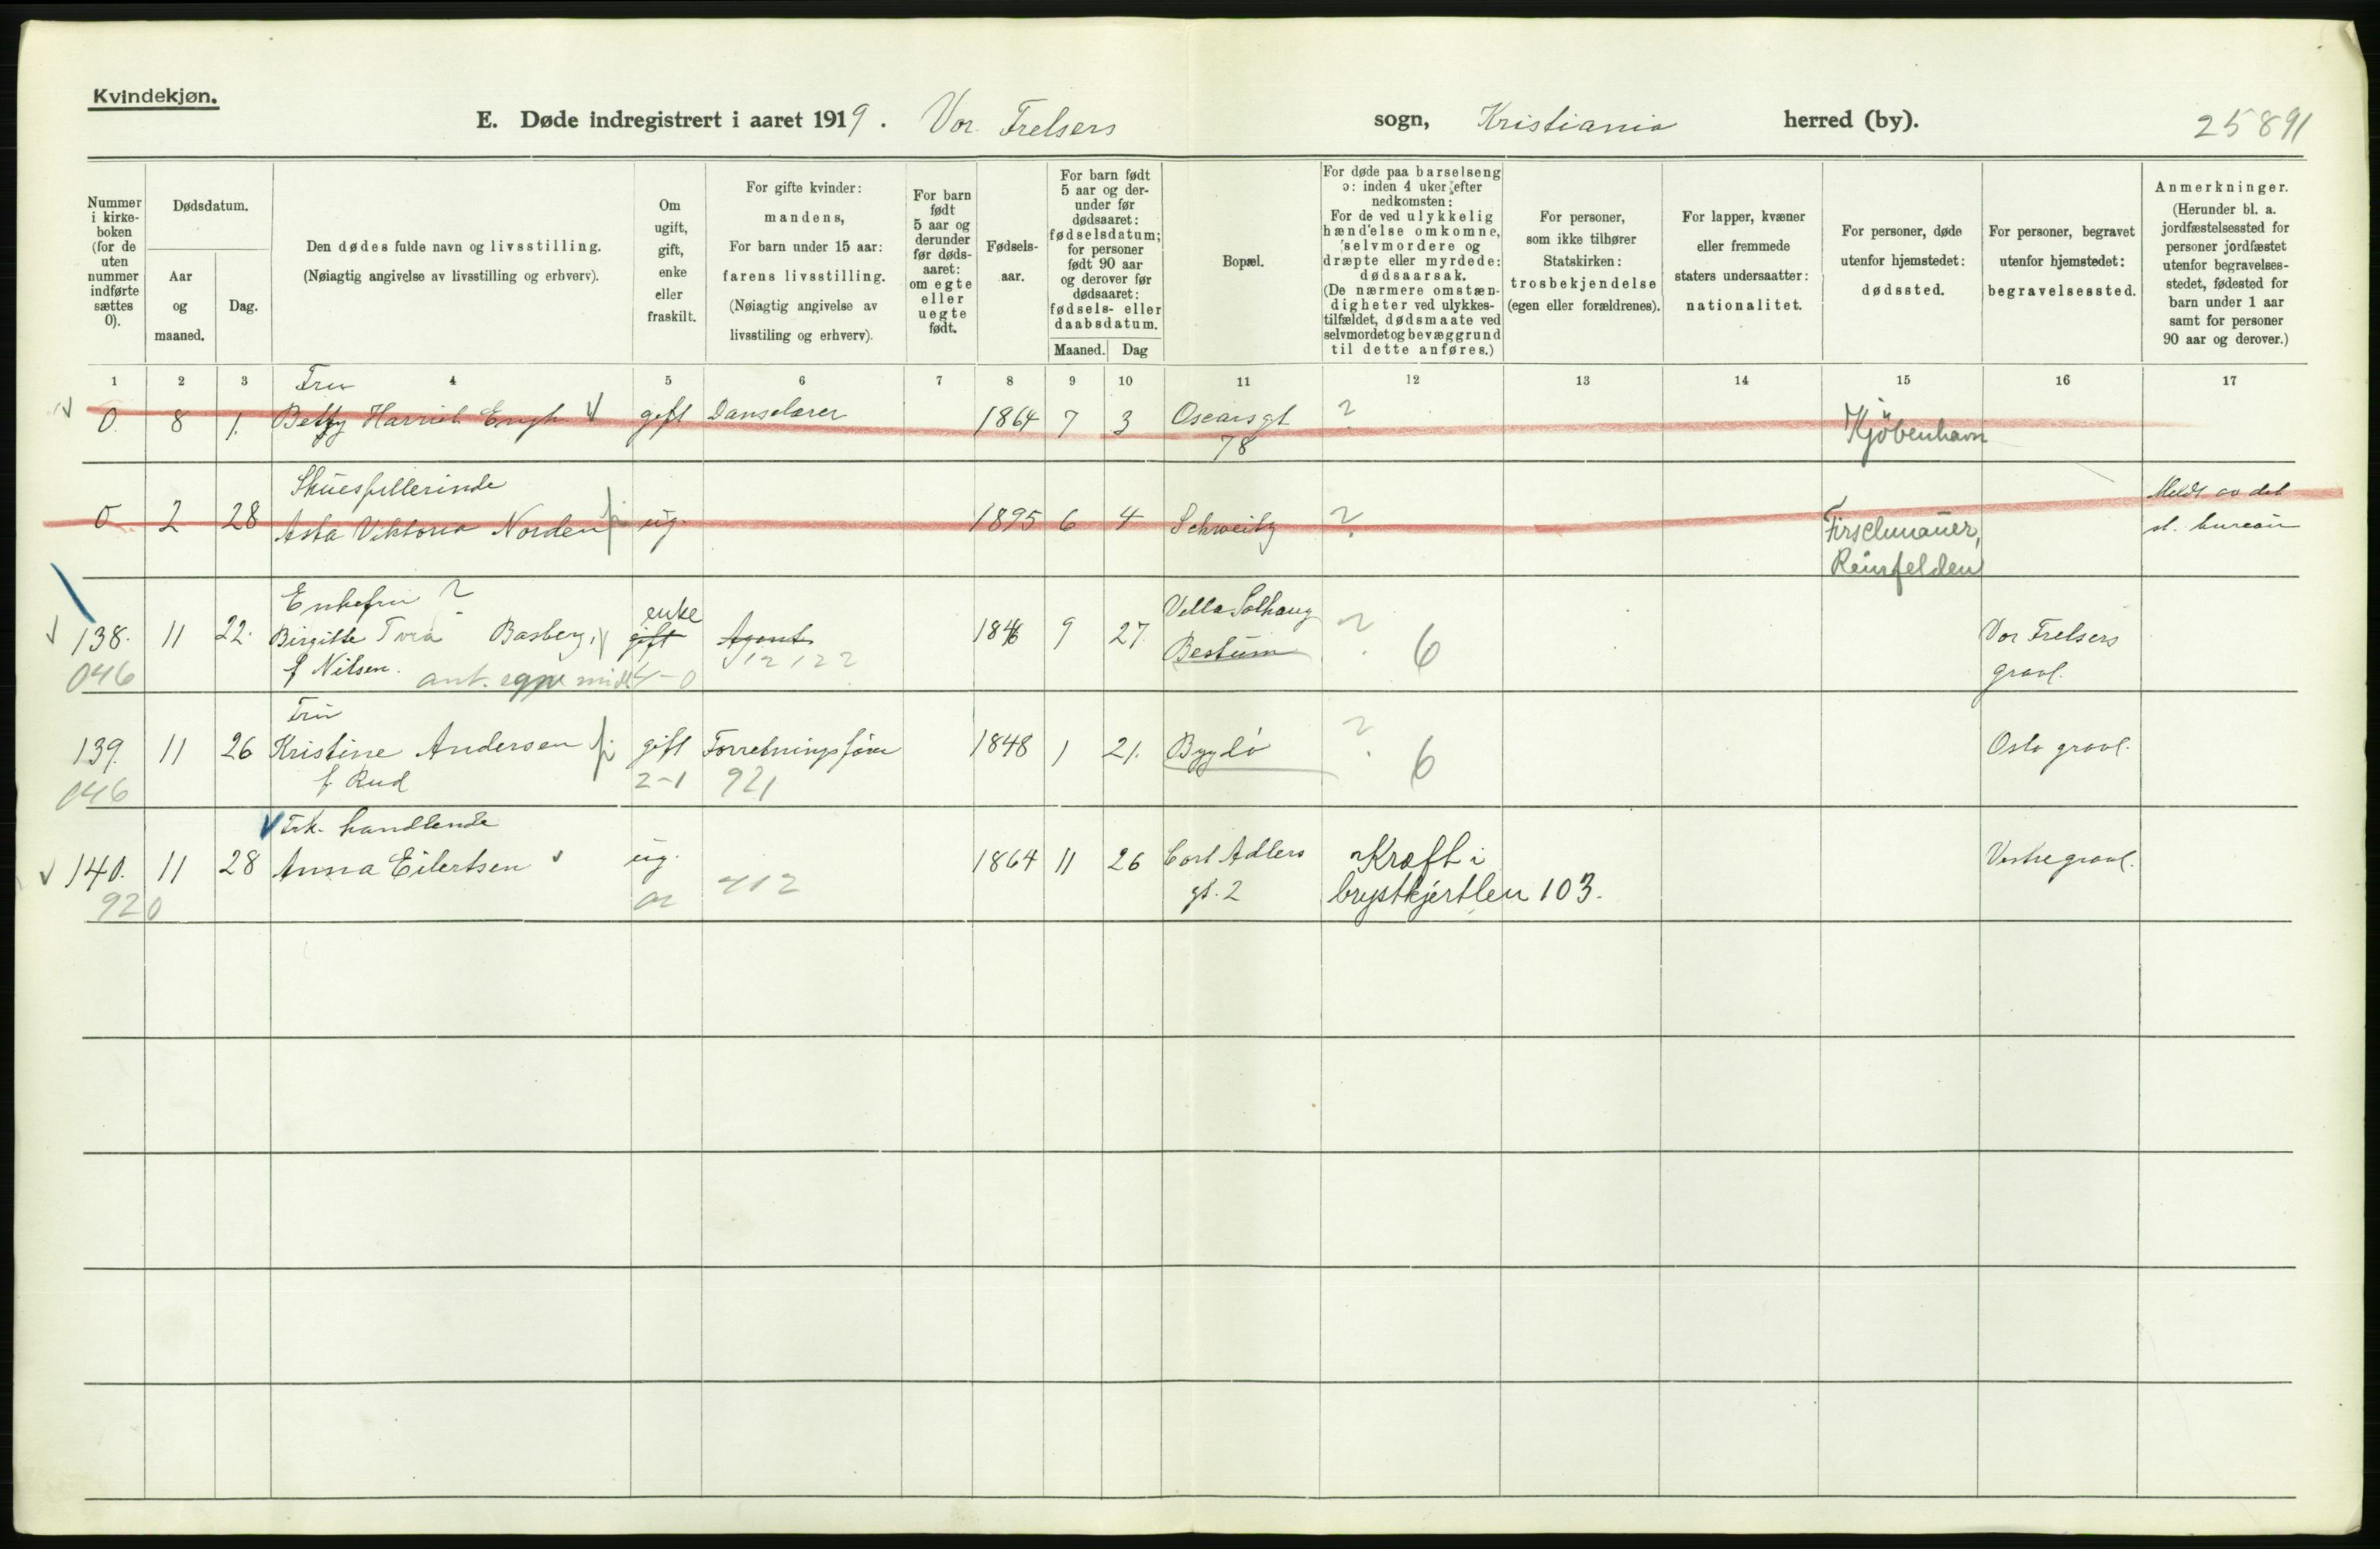 Kvindekjøn.
E. Døde indregistrert i aaret 1919. Vor Frelsers sogn, Kristiania herred (by). 25891
Nummer i kirke-boken (for de uten nummer indførte sættes 0).
Dødsdatum.
Aar og maaned.
Dag.
Den dødes fulde navn og livsstilling.
(Nøiagtig angivelse av livsstilling og erhverv).
Om ugift, gift, enke eller fraskilt.
For gifte kvinder: mandens,
For barn under 15 aar: farens livsstilling.
(Nøiagtig angivelse av livsstiling og erhverv).
For barn født 5 aar og derunder før døds-aaret: om egte eller uegte født.
Fødsels-aar.
For barn født 5 aar og der-under før dødsaaret: fødselsdatum; for personer født 90 aar og derover før dødsaaret: fødsels- eller daabsdatum.
Maaned. Dag
Bopæl.
For døde paa barselseng ɔ: inden 4 uker efter nedkomsten:
For de ved ulykkelig hændelse omkomne, selvmordere og dræpte eller myrdede: dødsaarsak.
(De nærmere omstæn-digheter ved ulykkes-tilfældet, dødsmaate ved selvmordet og bevæggrund til dette anføres.)
For personer, som ikke tilhører Statskirken: trosbekjendelse (egen eller forældrenes).
For lapper, kvæner eller fremmede staters undersaatter: nationalitet.
For personer, døde utenfor hjemstedet: dødssted.
For personer, begravet utenfor hjemstedet: begravelsessted.
Anmerkninger.
(Herunder bl. a. jordfæstelsessted for personer jordfæstet utenfor begravelses-stedet, fødested for barn under 1 aar samt for personer 90 aar og derover.)
1 2 3 4 5 6 7 8 9 10 11 12 13 14 15 16 17
Fru
0. 8 1. Betty Harriet Engh gift Danselærer 1864 7 3 Oscarsgt ? Kjöbenhavn
78
Skuespillerinde
0 2 28 Asta Viktoria Norden ug. 1895 6 4 Schweitz ? Firschmauer, Meldt av det
Reinfelden st. bureau
Enkefru ? enke Villa Solhaug
138. 11 22. Birgitte Basberg, gift Agent 1846 9 27. Bestum ? 6 Vor Frelsers
046 f Nilsen. ant. egne midl. 4-0 12122 gravl.
Fru
139. 11 26 Kristine Andersen gift Forretningsfører 1848 1 21. Bygdö ? 6 Oslo gravl.
046 f. Rud 2-1 921
Frk. handlende
140. 11 28 Anna Eilertsen ug. 1864 11 26 Carl Adlers Kræft i Vestre gravl.
920 712 gt. 2 brystkjertlen 103.